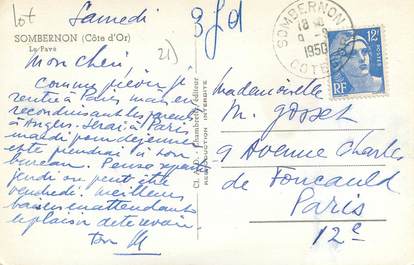 lot
Samedi
SOMBERNON (Côte d'Or)
Le Pavé
21)
Mon Cheri
Comme prévu je
rentre à Paris mais en
reconduisant les parents
à Angers. Serai à Paris
mardi pour déjeuner
et te prendrai à ton
bureau. Pense
jeudi ou peut être
vendredi. Meilleurs
baisers en attendant
le plaisir de te revoir
ton M
REPRODUCTION INTERDITE
SOMBERNON
18
1950
COTE D'OR
12F
RF
Mademoiselle
M. Gosset
9 Avenue Charles
de Foucauld
Paris
12e